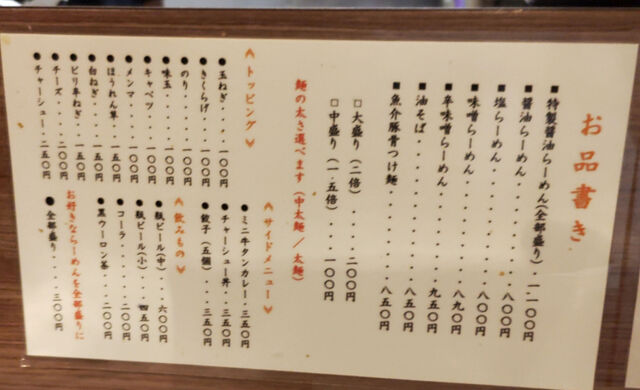 お品書き
■特製醤油らーめん(全部盛り)・一一〇〇円
■醤油らーめん・・・・・・八〇〇円
■塩らーめん・・・・・・・八〇〇円
■味噌らーめん・・・・・・八九〇円
■辛味噌らーめん・・・・・九五〇円
■油そば・・・・・・・・・八五〇円
■魚介豚骨つけ麺・・・・・八五〇円
□大盛り(二倍)・・・二〇〇円
□中盛り(一.五倍)・・・一〇〇円
麺の太さ選べます(中太麺/太麺)
《トッピング》
●玉ねぎ・・・一〇〇円
●きくらげ・・・一〇〇円
●のり・・・・一〇〇円
●味玉・・・・一〇〇円
●キャベツ・・・一〇〇円
●メンマ・・・一〇〇円
●ほうれん草・・一五〇円
●白ねぎ・・・一五〇円
●ピリ辛ねぎ・・一五〇円
●チーズ・・・二〇〇円
●チャーシュー・二五〇円
《サイドメニュー》
●ミニ牛タンカレー・三五〇円
●チャーシュー丼・・三五〇円
●餃子(五個)・・・三五〇円
《飲みもの》
●瓶ビール(中)・・六〇〇円
●瓶ビール(小)・・四五〇円
●コーラ・・・・・二〇〇円
●黒ウーロン茶・・・二〇〇円
お好きならーめんを全部盛りに
●全部盛り・・・三〇〇円